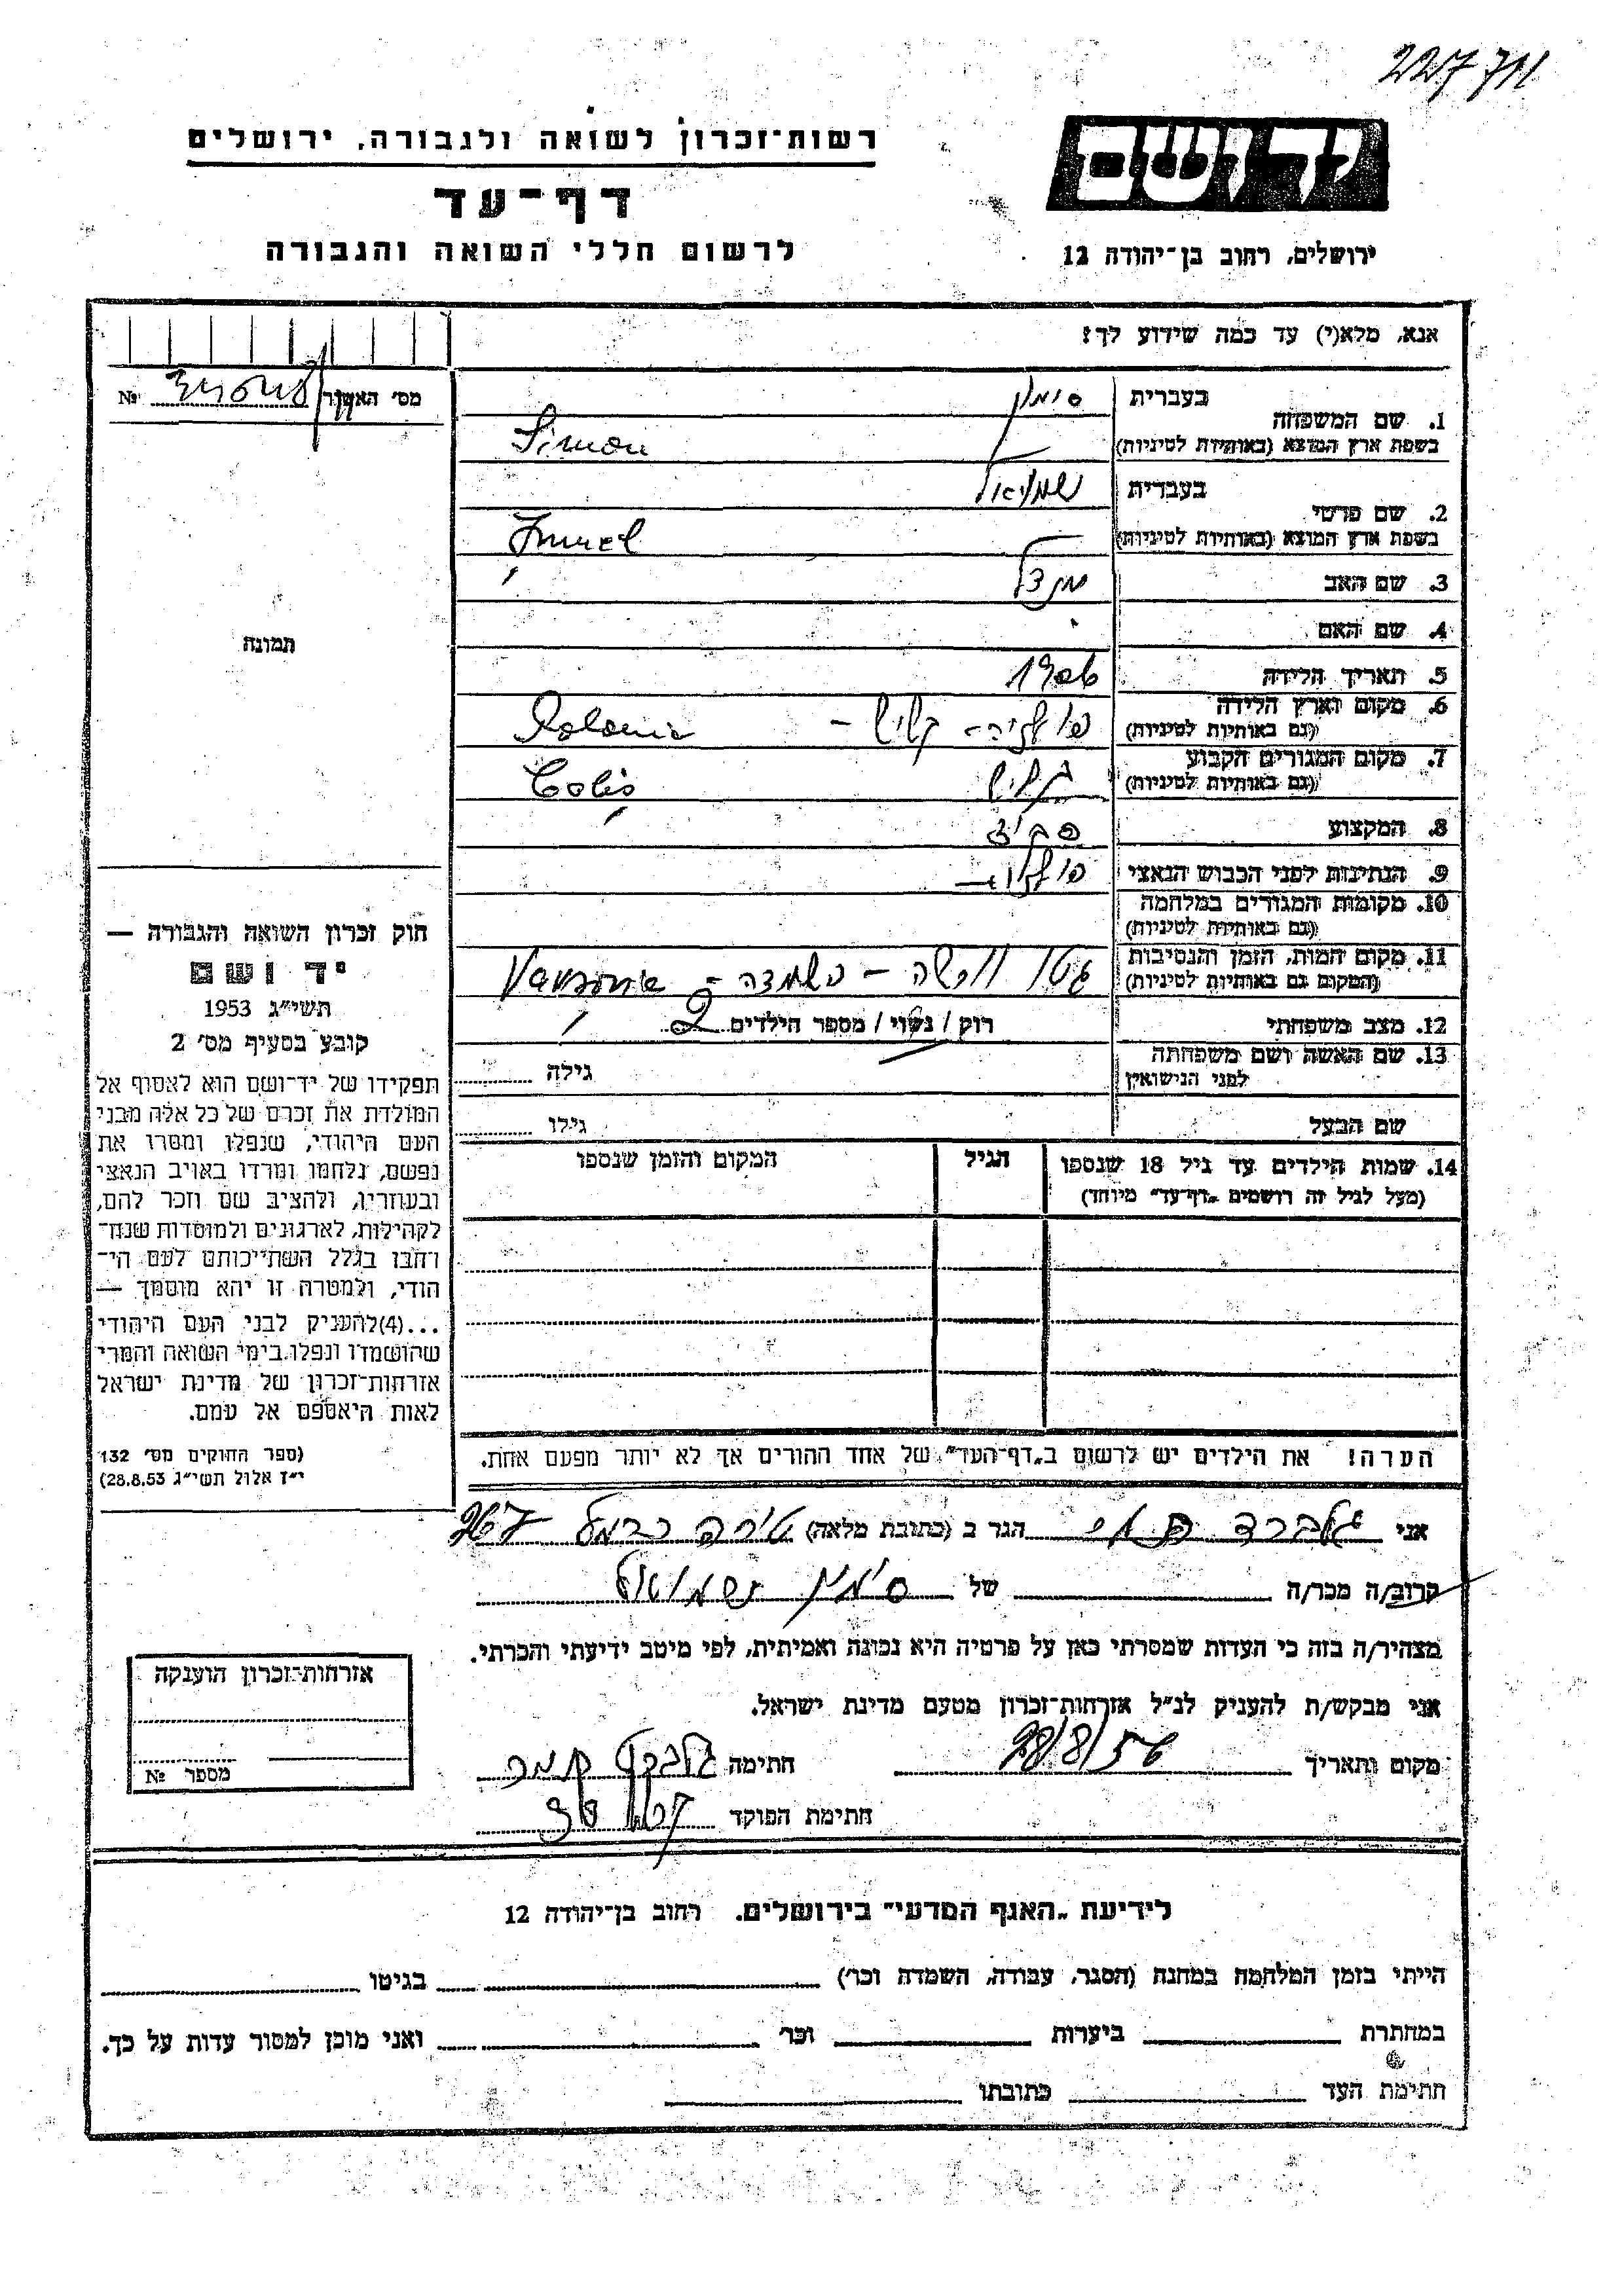 רשות־זכרון לשואה ולגבורה, ירושלים
יד ושם
דף־עד
לרשום חללי השואה והגבורה
ירושלים, רחוב בן־יהודה 12
אנא, מלא(י) עד כמה שידוע לך:
1. שם המשפחה
בעברית סימון
בשפת ארץ המוצא (באותיות לטיניות) Simon
2. שם פרטי
בעברית שמואל
בשפת ארץ המוצא (באותיות לטיניות)
3. שם האב מנדל
4. שם האם
5. תאריך הלידה
6. מקום וארץ הלידה (גם באותיות לטיניות) פולניה - קליש - Polonia
7. מקום המגורים הקבוע (גם באותיות לטיניות) קליש
8. המקצוע
9. הנתינות לפני הכבוש הנאצי
10. מקומות המגורים במלחמה (גם באותיות לטיניות)
11. מקום המות, הזמן והנסיבות (המקום גם באותיות לטיניות) גטו ורשה - השמדה -
12. מצב משפחתי רוק / נשוי / מספר הילדים 2
13. שם האשה ושם משפחתה לפני הנישואין גילה
שם הבעל גילו
14. שמות הילדים עד גיל 18 שנספו (מעל לגיל זה רושמים „דף־עד״ מיוחד)
הגיל
המקום והזמן שנספו
הערה! את הילדים יש לרשום ב„דף־העד״ של אחד ההורים אך לא יותר מפעם אחת.
מס׳ האשור №
תמונה
חוק זכרון השואה והגבורה —
יד ושם
תשי״ג 1953
קובע בסעיף מס׳ 2
תפקידו של יד־ושם הוא לאסוף אל
המולדת את זכרם של כל אלה מבני
העם היהודי, שנפלו ומסרו את
נפשם, נלחמו ומרדו באויב הנאצי
ובעוזריו, ולהציב שם וזכר להם,
לקהילות, לארגונים ולמוסדות שנח־
רחבו בגלל השתייכותם לעם הי־
הודי, ולמטרה זו יהא מוסמך —
...(4)להעניק לבני העם היהודי
שהושמדו ונפלו בימי השואה והמרי
אזרחות־זכרון של מדינת ישראל
לאות היאספם אל עמם.
(ספר החוקים מס׳ 132
י״ז אלול תשי״ג 28.8.53)
אני הגר ב (כתובת מלאה) טירה כרמל
קרוב/ה מכר/ה של סימון שמואל
מצהיר/ה בזה כי העדות שמסרתי כאן על פרטיה היא נכונה ואמיתית, לפי מיטב ידיעתי והכרתי.
אני מבקש/ת להעניק לנ״ל אזרחות־זכרון מטעם מדינת ישראל.
מקום ותאריך חתימה
חתימת הפוקד
אזרחות־זכרון הוענקה
מספר №
לידיעת „האגף המדעי״ בירושלים. רחוב בן־יהודה 12
הייתי בזמן המלחמה במחנה (הסגר, עבודה, השמדה וכו׳) בגיטו
במחתרת ביערות וכו׳ ואני מוכן למסור עדות על כך.
חתימת העד כתובתו